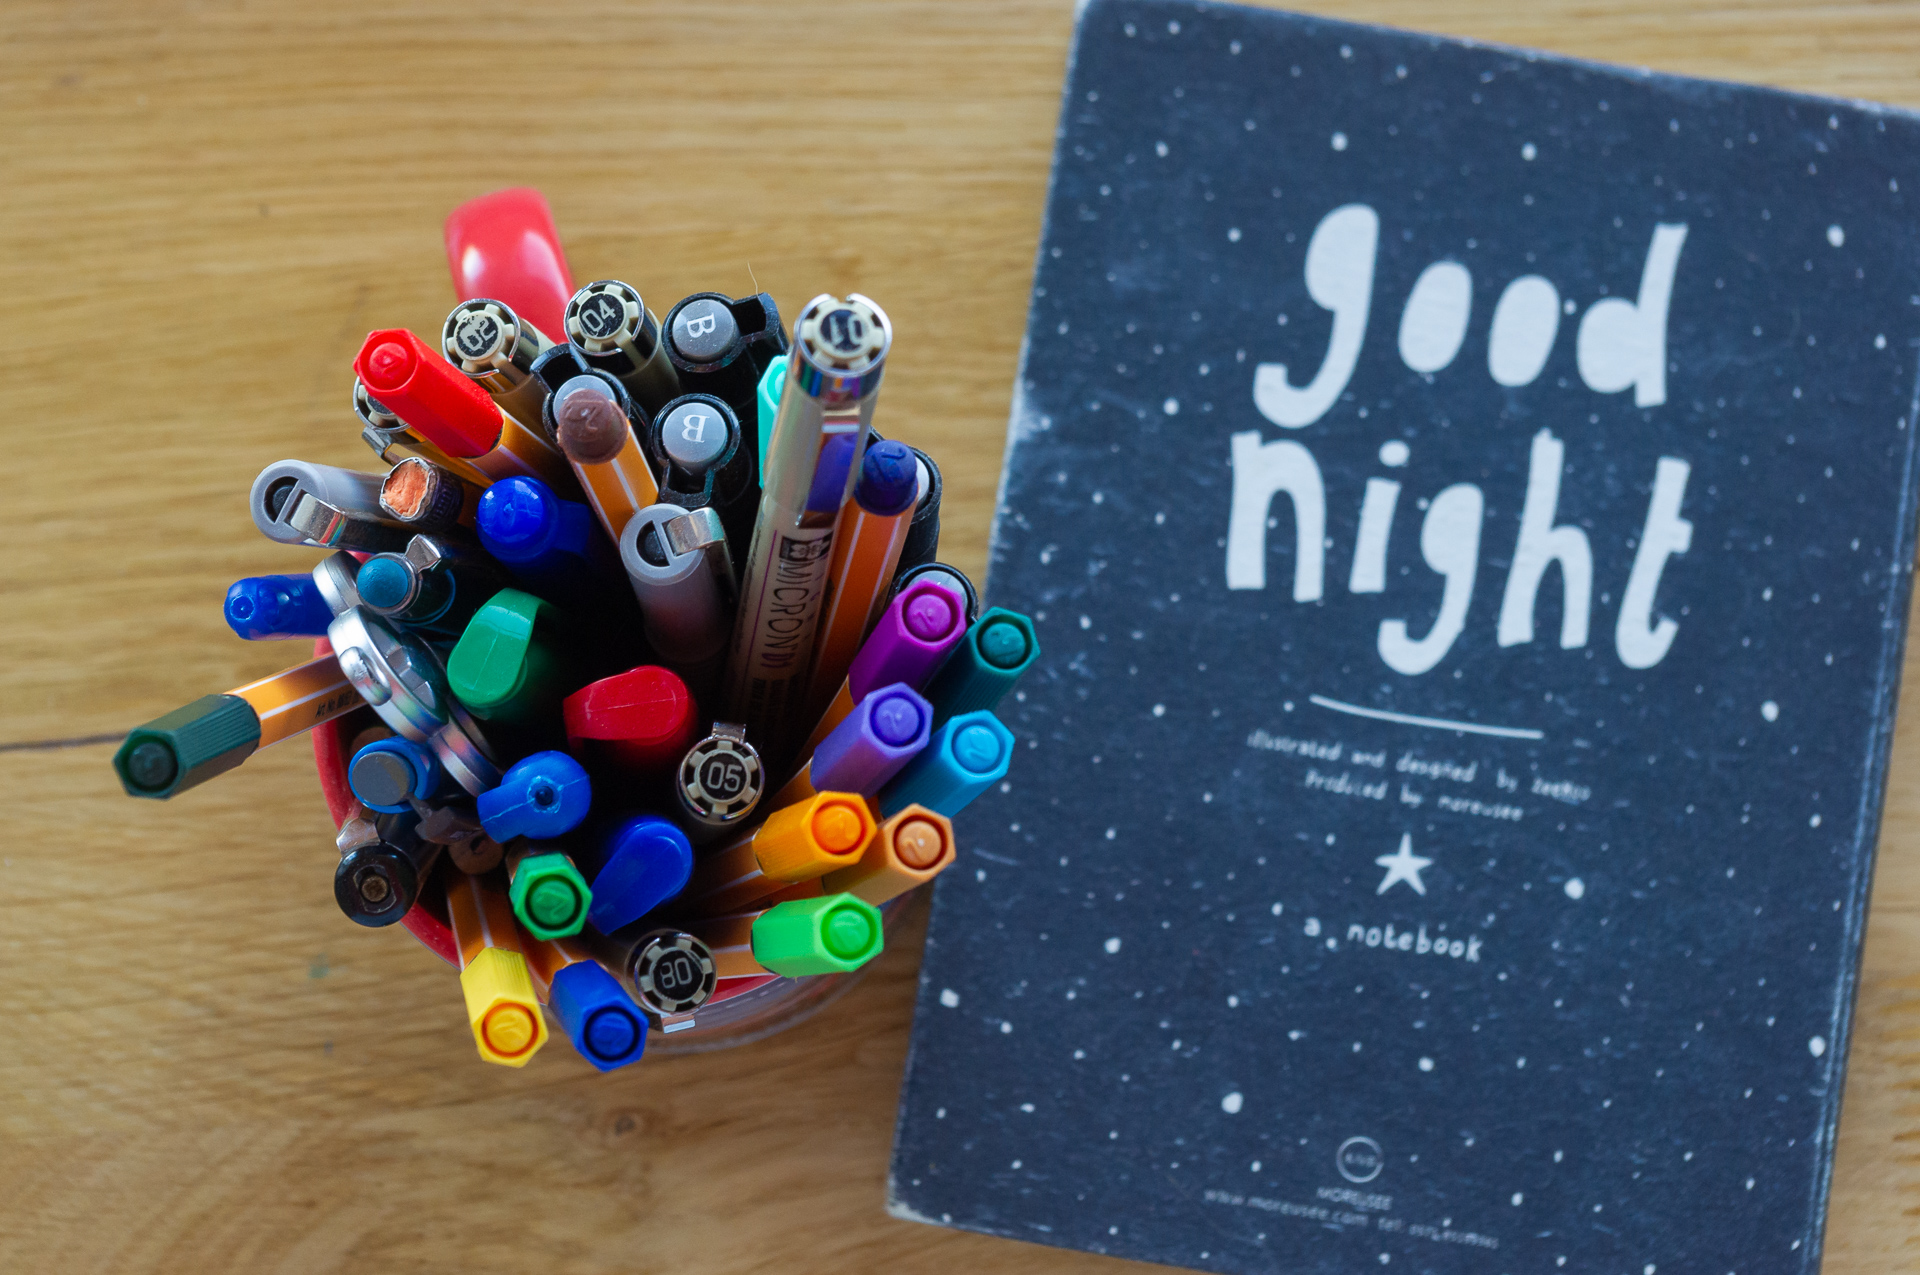 04
B
01
B
MICRON
05
08
good
night
illustrated and designed by
Produced by moreusee
a notebook
MOREUSEE
www.moreusee.com tel